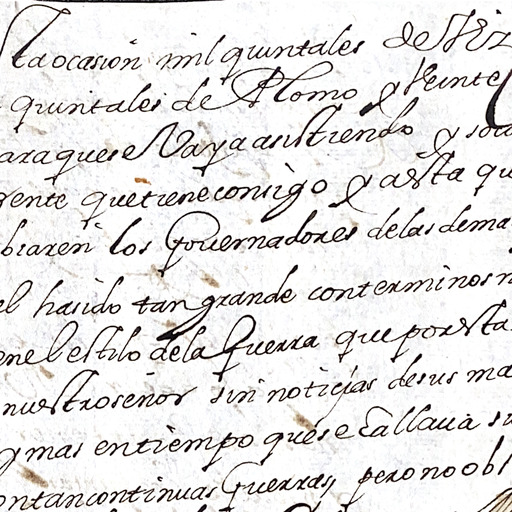 sta ocasion mil quintales de Viz
quintales de Plomo y Veinte
ara que se Vaya asistiendo y soco
gente que tiene consigo y a esta qu
biaren los Governadores de las dema
el ha sido tan grande con terminos n
en el estilo de la Guerra que por esta
nuestro señor sin noticias de sus ma
y mas en tiempo que se allava su
on tan continuas Guerras pero no obs